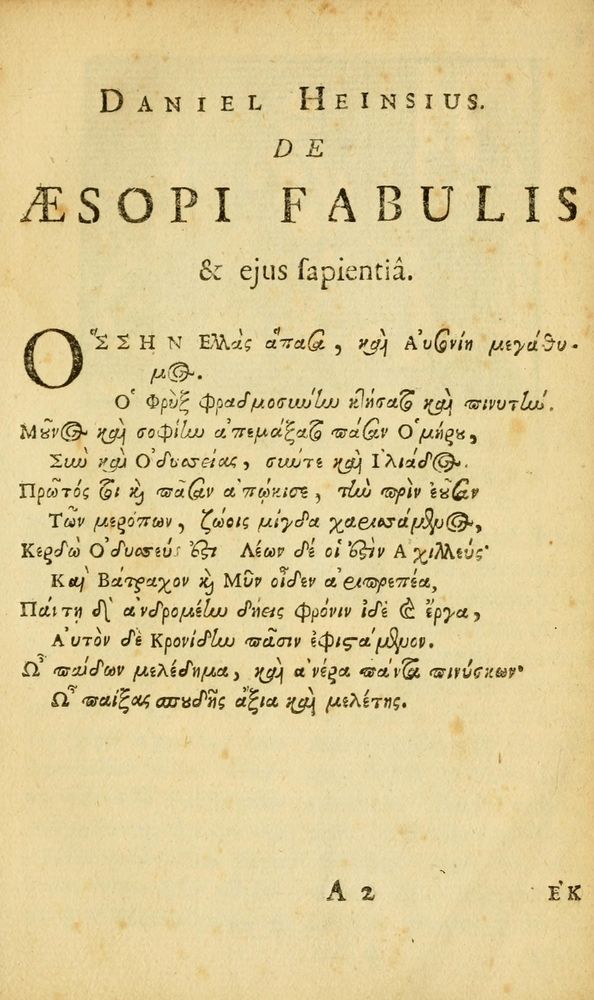 DANIEL HEINSIUS.
DE
ÆSOPI FABULIS
& ejus ſapientiâ.
ὉΣΣΗΝ Ελλὰς ἅπασα, καὶ Αὐσονίη μεγάθυ-
μος.
Ὁ Φρὺξ φραδμοσύνην κλήσατο καὶ πινυτήν.
Μοῦνος καὶ σοφίην ἀπεμάξατο πᾶσαν Ὁμήρου,
Σὺν καὶ Ὀδυσσείας, σύν τε καὶ Ἰλιάδος.
Πρῶτός τοι καὶ πᾶσαν ἀπῴκισε, τὴν πρὶν ἐοῦσαν
Τῶν μερόπων, ζώοις μίγδα χαρισάμενος,
Κερδὼ Ὀδυσσεύς ἐστι Λέων δέ οἱ ἐστὶν Ἀχιλλεύς·
Καὶ Βάτραχον καὶ Μῦν οἶδεν ἀριπρεπέα,
Πάντη δ' ἀνδρομέην δήεις φρόνιν ἰδὲ τὰ ἔργα,
Αὐτὸν δὲ Κρονίδην πᾶσιν ἐφιστάμενον.
Ὦ παίδων μελέδημα, καὶ ἀνέρα πάντα πινύσκων·
Ὦ παίξας σπουδῆς ἄξια καὶ μελέτης.
A 2 ἘΚ